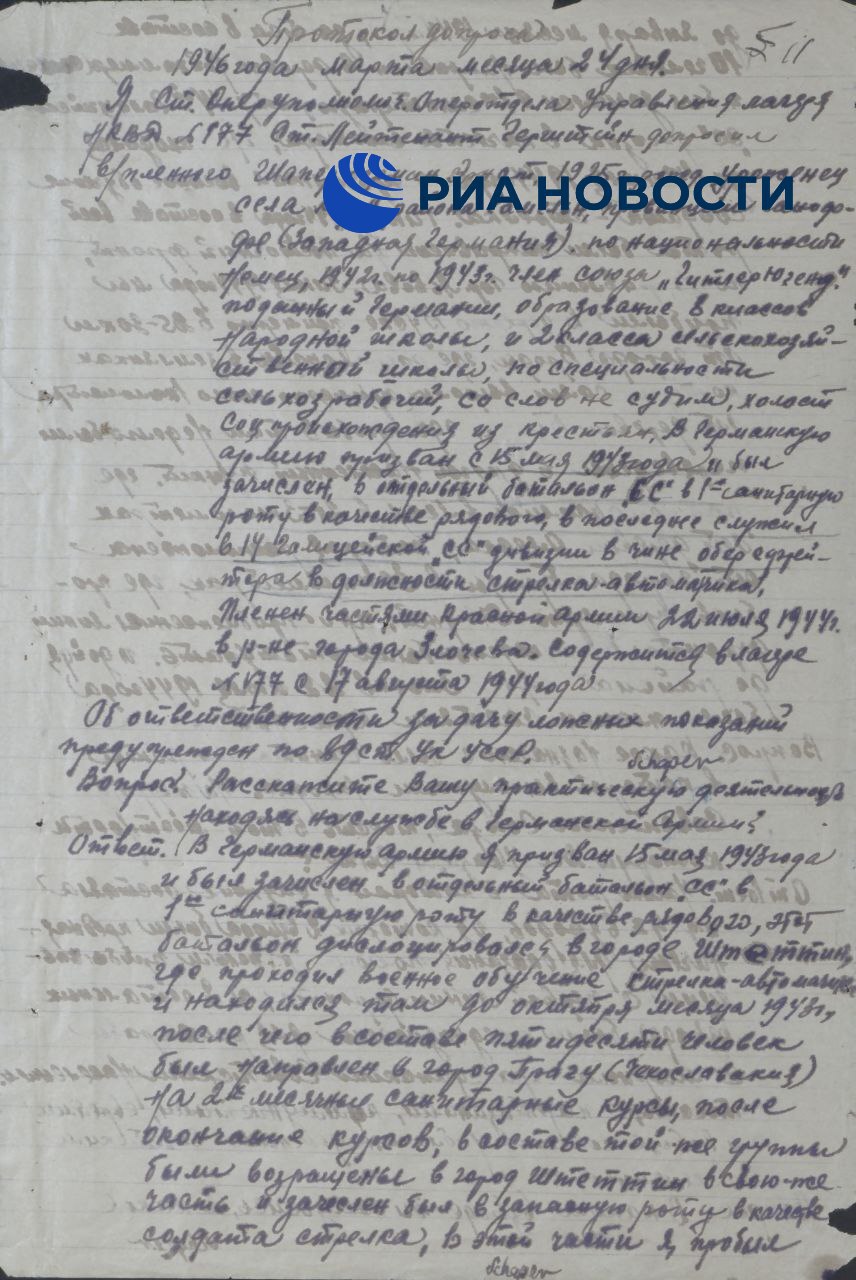 Протокол допроса
11
1946 года марта месяца 24 дня.
Я Ст. Оперуполномоч. Оперотдела Управления лагеря
НКВД №177 Ст. Лейтенант Герштейн допросил
в/пленного 1925 года уроженец
РИА НОВОСТИ
села
(Западная Германия). по национальности
Немец, 1942г. по 1943г. член союза „Гитлерюгенд."
подданный Германии, образование 8 классов
Народной школы, и 2 класса сельскохозяй-
ственной школы, по специальности
сельхозрабочий, со слов не судим, холост
Соц происхождения из крестьян, В Германскую
армию призван с 15 мая 1943 года и был
зачислен, в отдельный батальон „СС" в 1ую санитарную
роту в качестве рядового, в последнее служил
в 14 Галицейской „СС" дивизии в чине обер ефрей-
тора в должности стрелка-автоматчика,
Пленен частями Красной армии 22 июля 1944г.
в р-не города Злочева. Содержится в лагере
№177 с 17 августа 1944 года
Об ответственности за дачу ложных показаний
предупрежден по ст. УК УССР.
Вопрос: Расскажите Вашу практическую деятельность
находясь на службе в Германской Армии?
Ответ. В Германскую армию я призван 15 мая 1943 года
и был зачислен в отдельный батальон „СС" в
1ую санитарную роту в качестве рядового, этот
батальон дислоцировался в городе Штеттин,
где проходил военное обучение стрелка-автоматчика
и находился там до октября месяца 1943г.,
после чего в составе пятидесяти человек
был направлен в город Прагу (Чехославакия)
на 2х месячные санитарные курсы, после
окончание курсов, в составе той-же группы
были возращены в город Штеттин в свою-же
часть и зачеслен был в запасную роту в качестве
солдата стрелка, в этой части я пробыл